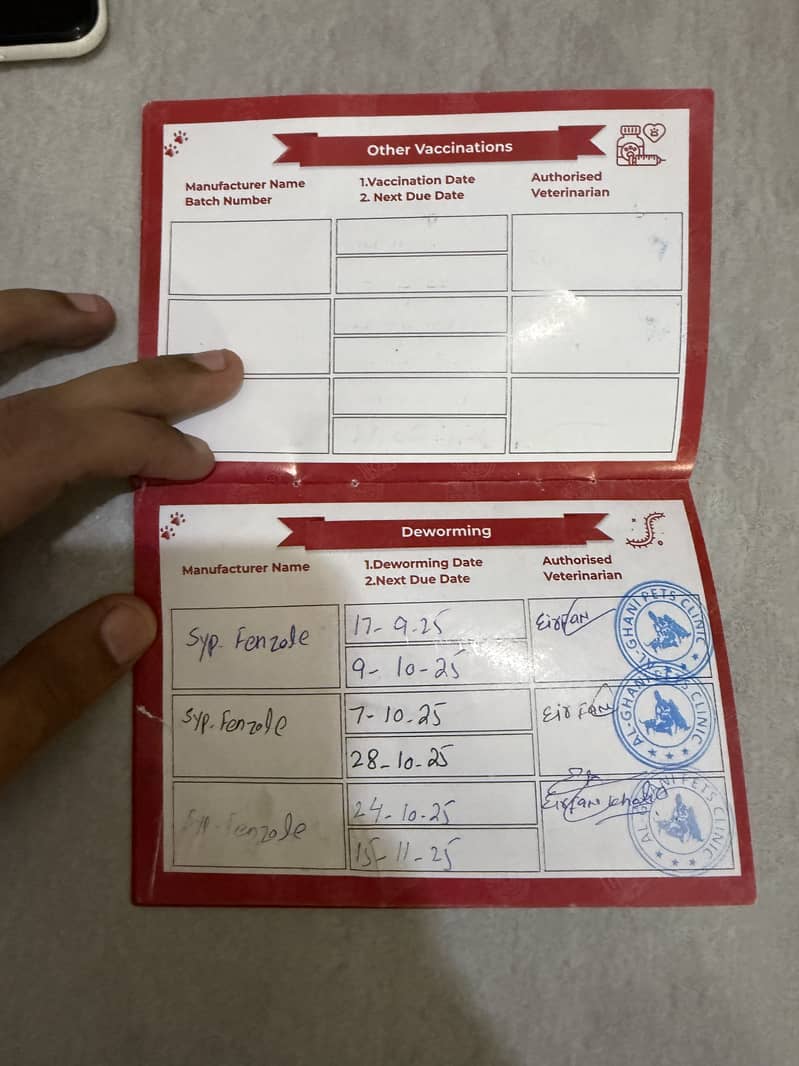 Other Vaccinations
Manufacturer Name
Batch Number
1.Vaccination Date
2. Next Due Date
Authorised
Veterinarian
Deworming
Manufacturer Name
1.Deworming Date
2.Next Due Date
Authorised
Veterinarian
Syp. Fenzole
17-9-25
9-10-25
Eirfan
AL-GHANI PETS CLINIC
Syp. Fenzole
7-10-25
28-10-25
Eirfan
AL-GHANI PETS CLINIC
Syp. Fenzole
24-10-25
15-11-25
Eirfan Khalid
AL-GHANI PETS CLINIC